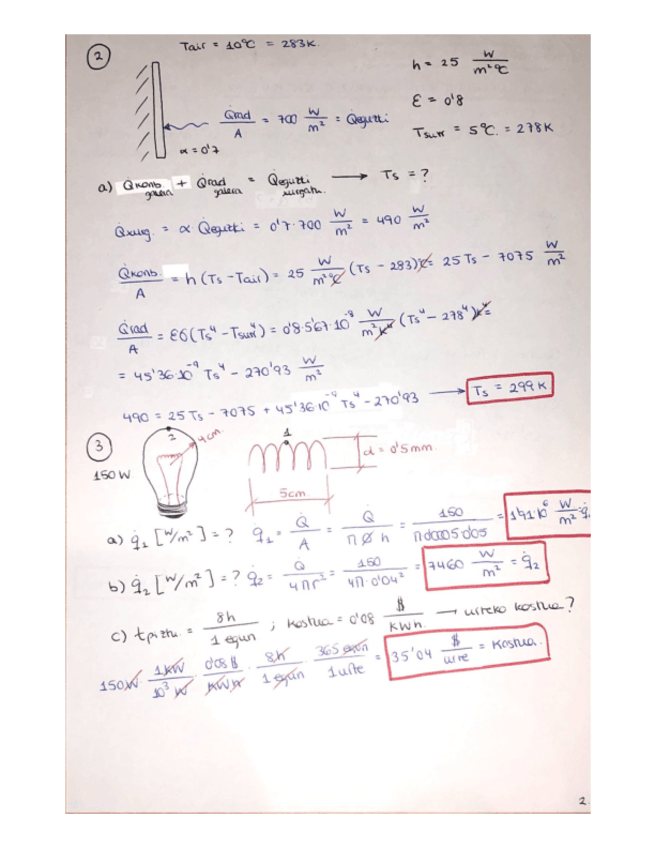 2
Tair = 10ºC = 283K.
h = 25 W/m²ºC
Q̇rad/A = 700 W/m² = Q̇eguzki
ε = 0'8
Tsurr = 5ºC. = 278K
α = 0'7
a) Q̇konb. galera + Q̇rad galera = Q̇eguzki xurgatu. → Ts = ?
Q̇xurg. = α Q̇eguzki = 0'7·700 W/m² = 490 W/m²
Q̇konb./A = h (Ts - Tair) = 25 W/m²ºC (Ts - 283)ºC = 25 Ts - 7075 W/m²
Q̇rad/A = εσ(Ts⁴ - Tsurr⁴) = 0'8·5'67·10⁻⁸ W/m²K⁴ (Ts⁴ - 278⁴)K⁴ =
= 45'36·10⁻⁹ Ts⁴ - 270'93 W/m²
490 = 25 Ts - 7075 + 45'36·10⁻⁹ Ts⁴ - 270'93 → Ts = 299 K
3
2
4cm.
1
d = 0'5mm
150 W
5cm.
a) q̇₁ [W/m²] = ? q̇₁ = Q̇/A = Q̇/(π Ø h) = 150/(π 0'0005 0'05) = 1'91·10⁶ W/m² = q̇
b) q̇₂ [W/m²] = ? q̇₂ = Q̇/(4πr²) = 150/(4π·0'04²) = 7460 W/m² = q̇₂
c) t piztu. = 8h/1 egun ; kostua = 0'08 $/kWh. → urteko kostua?
150W · 1kW/10³ W · 0'08 $/kWh · 8h/1 egun · 365 egun/1 urte = 35'04 $/urte = Kostua.
2.